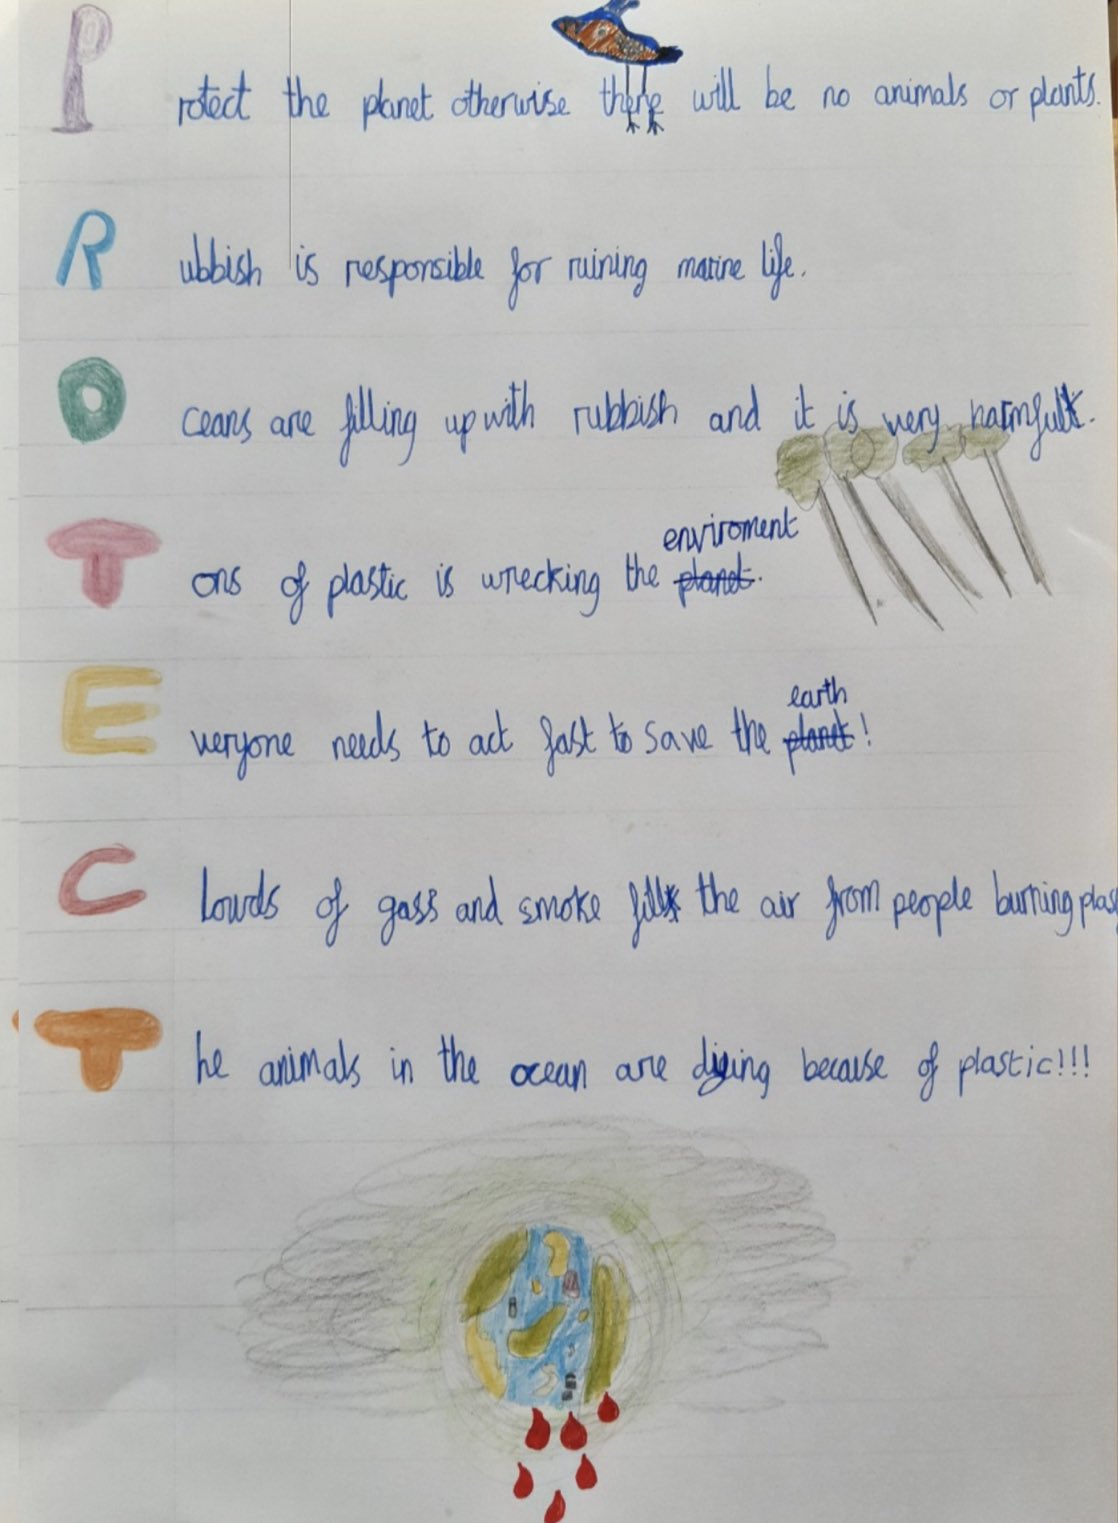 Protect the planet otherwise there will be no animals or plants.
Rubbish is responsible for ruining marine life.
Oceans are filling up with rubbish and it is very harmful.
Tons of plastic is wrecking the enviroment.
Everyone needs to act fast to save the earth!
Clowds of gass and smoke fill the air from people burning plas
The animals in the ocean are dying because of plastic!!!